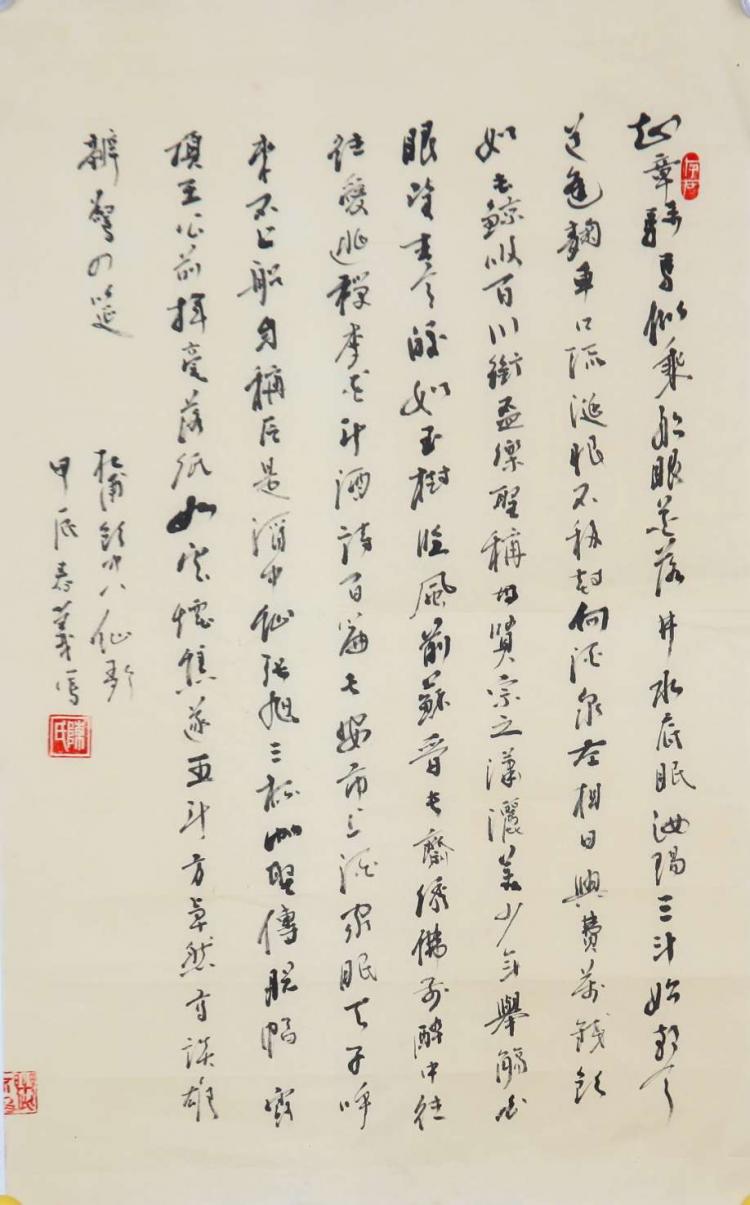 知章騎馬似乘船眼花落井水底眠汝陽三斗始朝天
道逢麴車口流涎恨不移封向酒泉左相日興費萬錢飲
如長鯨吸百川銜盃樂聖稱世賢宗之瀟灑美少年舉觴白
眼望青天皎如玉樹臨風前蘇晉長齋繡佛前醉中往
往愛逃禪李白斗酒詩百篇長安市上酒家眠天子呼
來不上船自稱臣是酒中仙張旭三杯草聖傳脫帽露
頂王公前揮毫落紙如雲煙焦遂五斗方卓然高談雄
辯驚四筵
杜甫飲中八仙歌
甲辰春義寫
陳氏